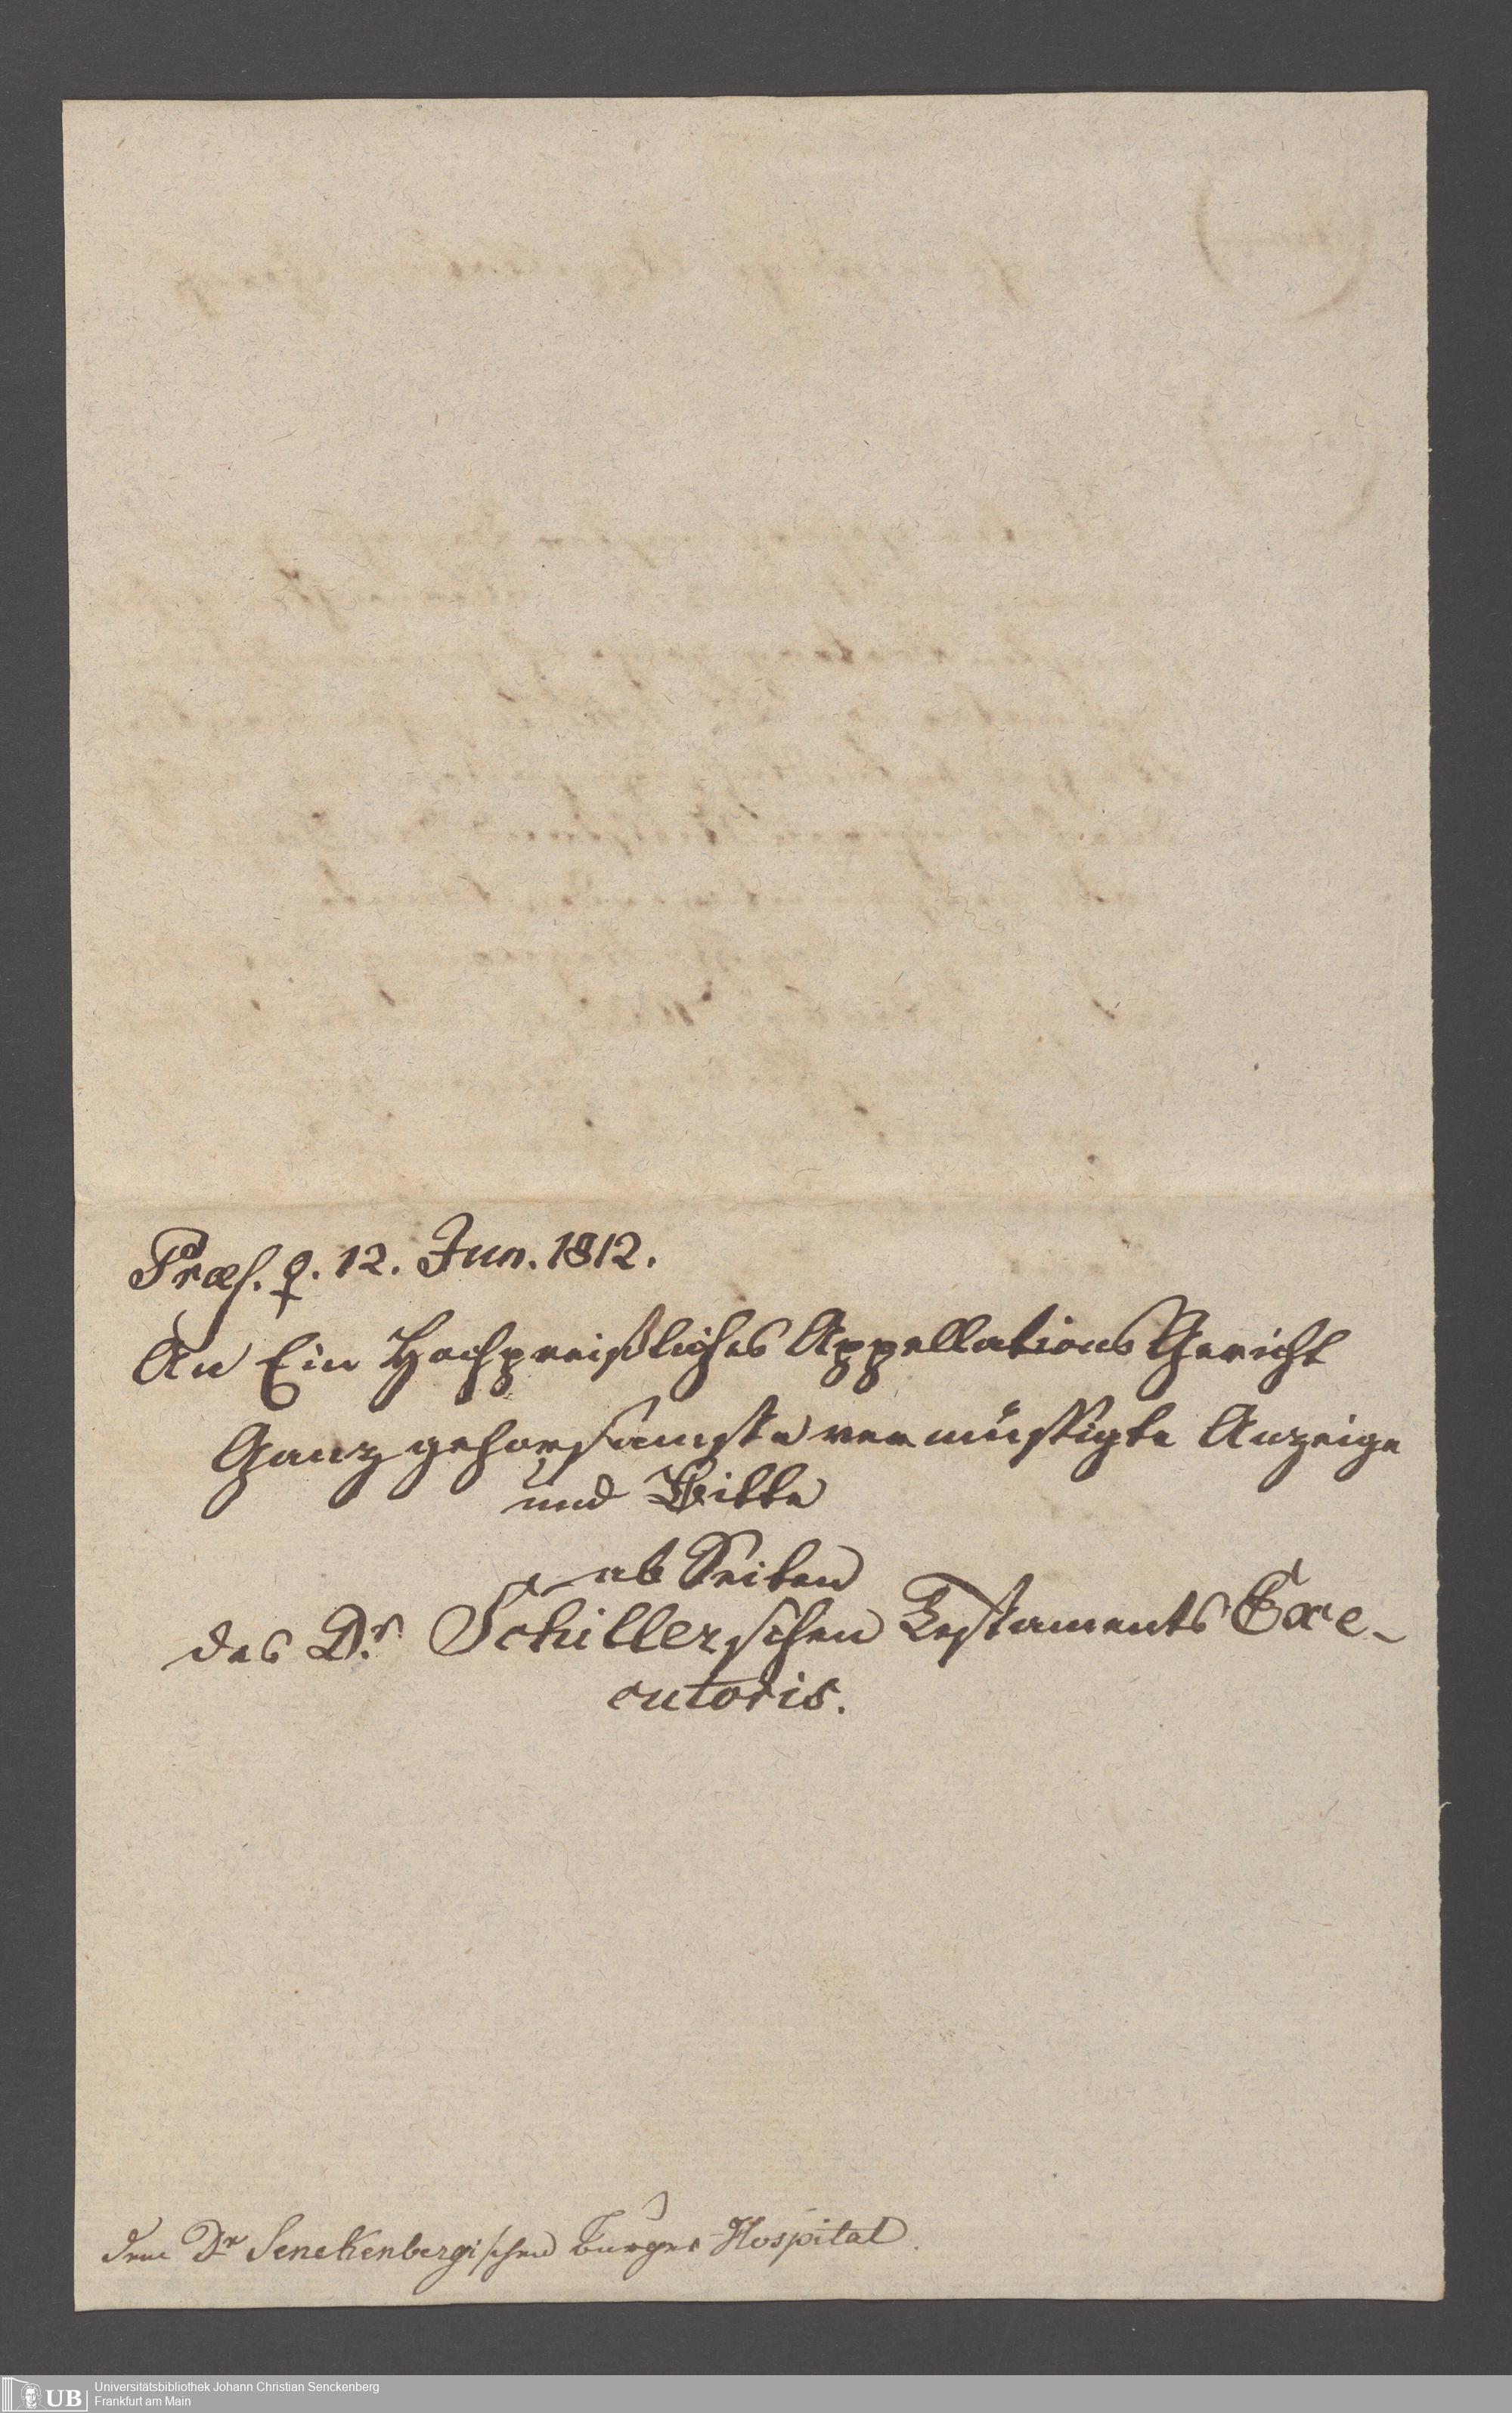 Præs. ♀. 12. Jun. 1812.
An Ein Hochpreißliches Appellations Gericht
Ganz gehorsamste vermüssigte Anzeige
und Bitte
ab Seiten
des Dr. Schillerschen Testaments Exe-
cutoris.
dem Dr Senckenbergischen Burger Hospital.
UB
Universitätsbibliothek Johann Christian Senckenberg
Frankfurt am Main